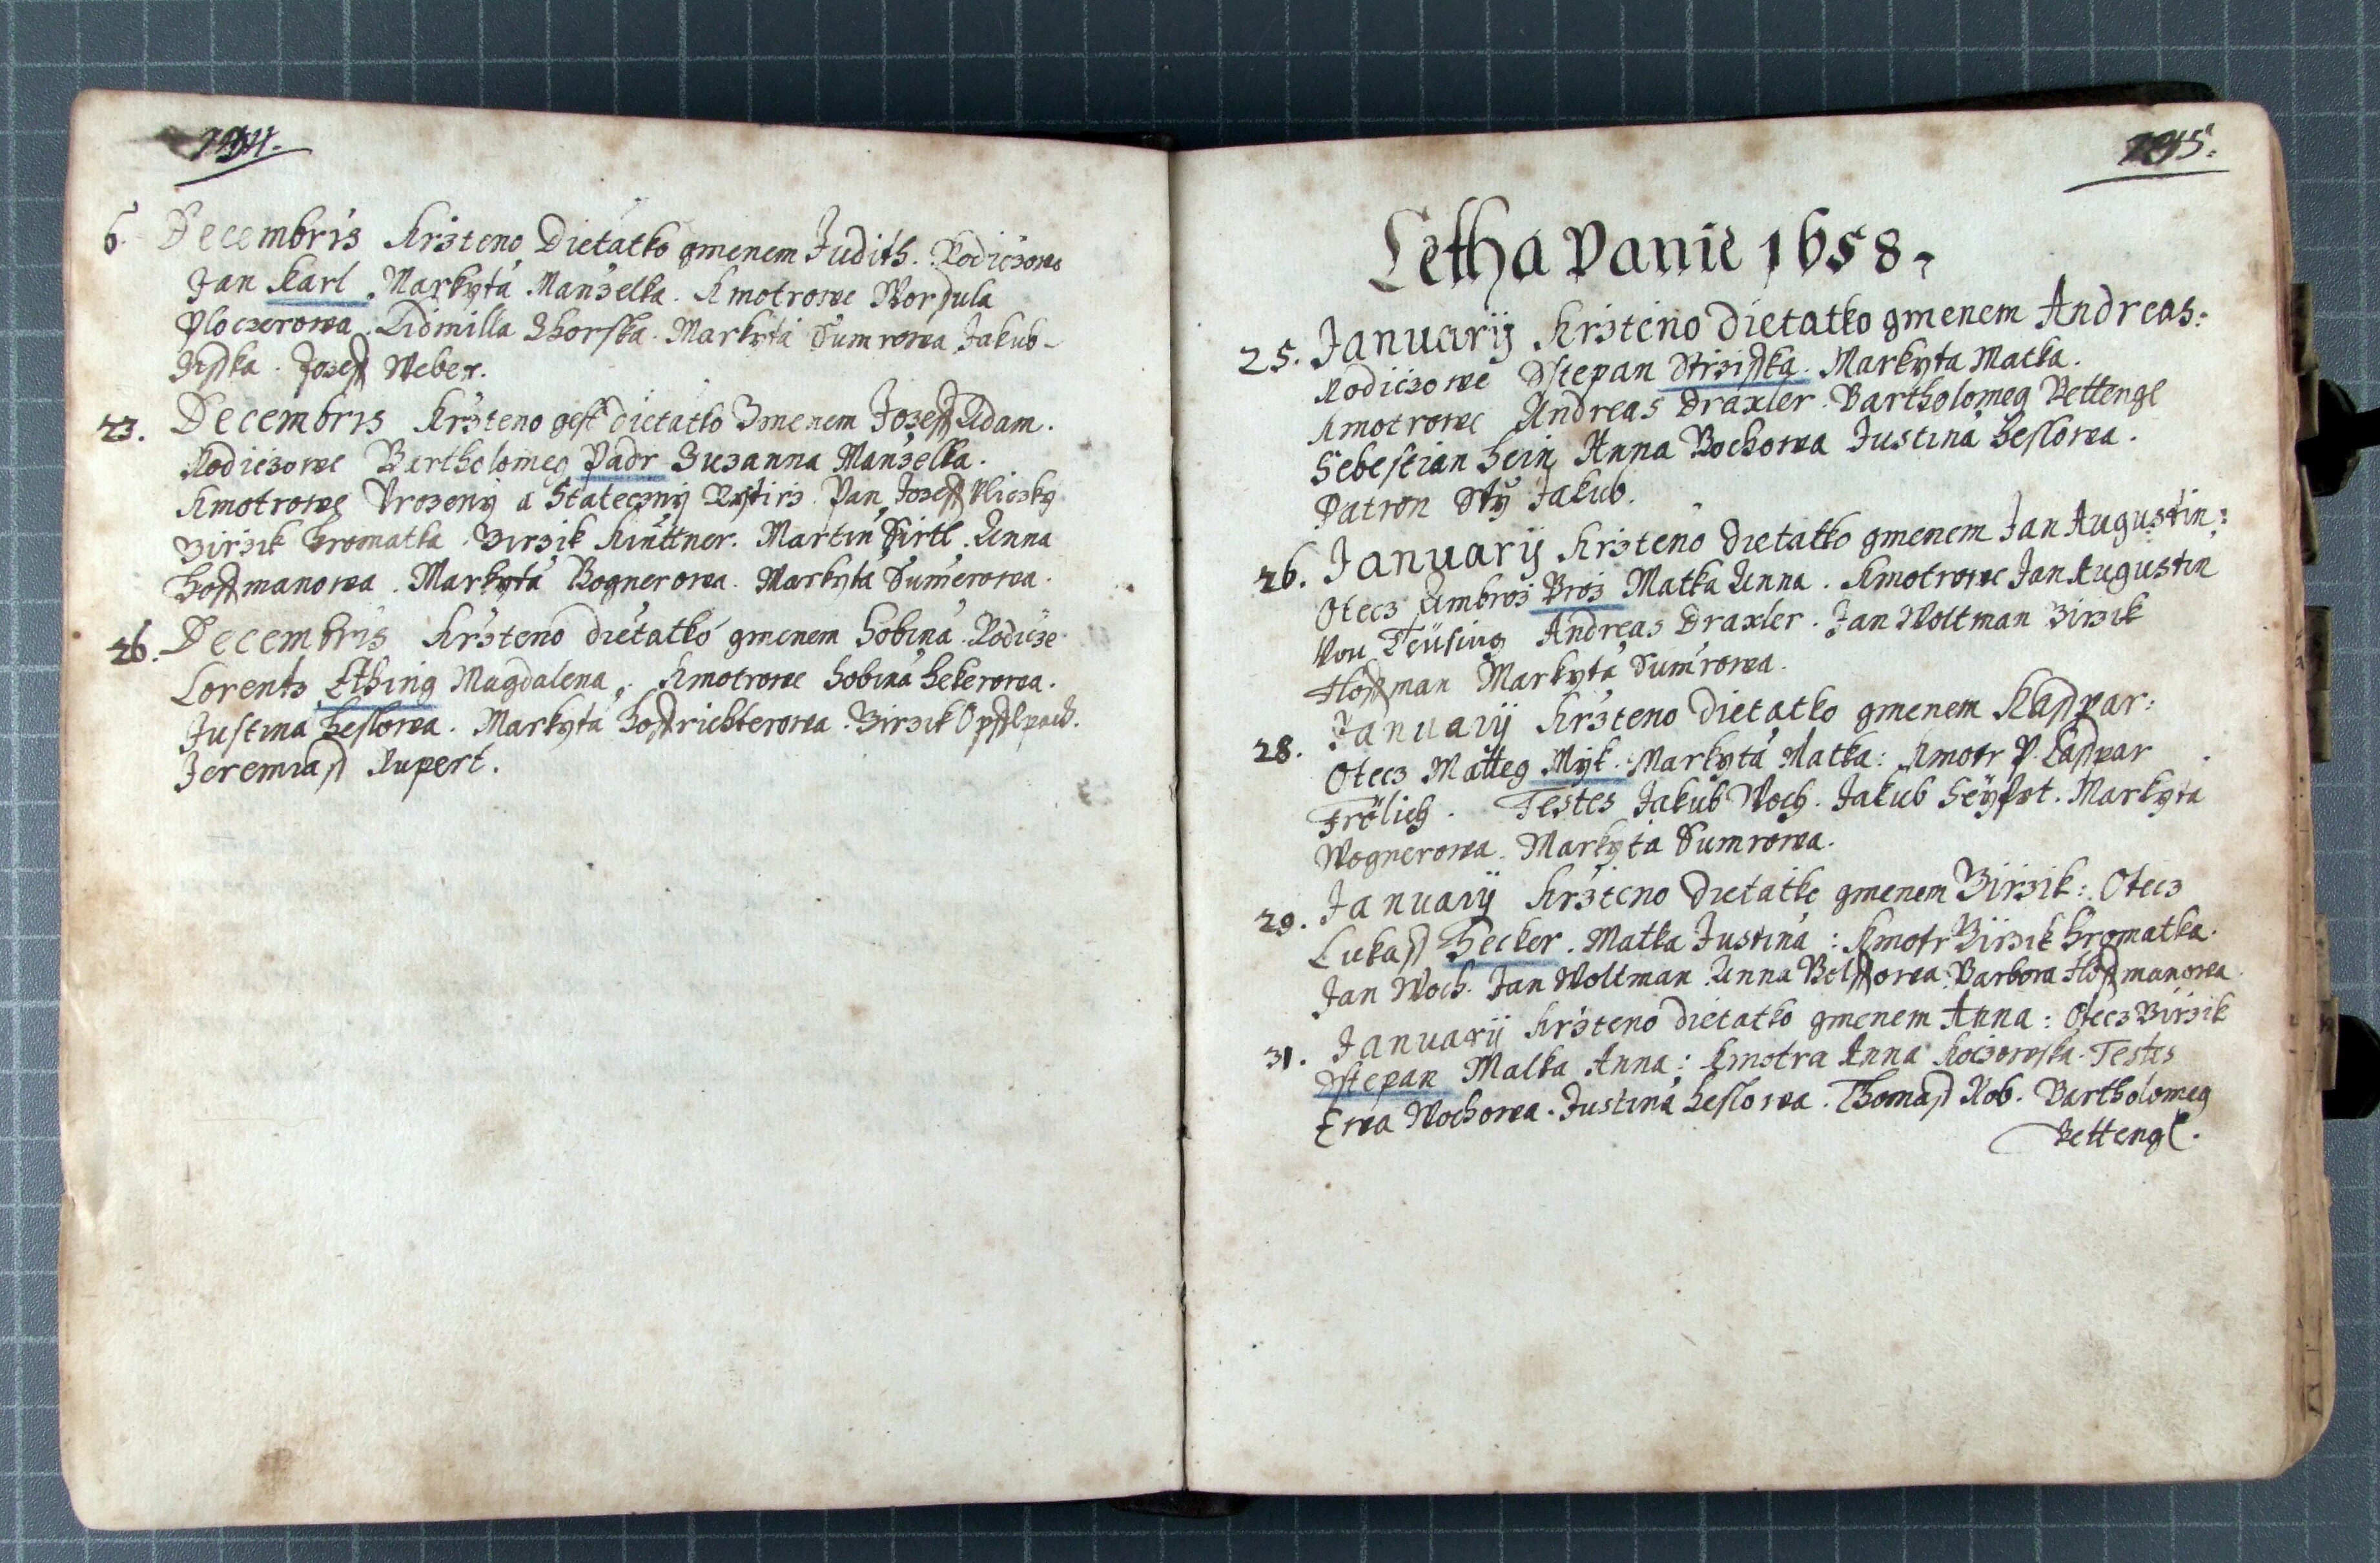 6. Decembris Krzteno Dietatko gmenem Judith. Rodiczowe
Jan Karl. Markyta Manzelka. Kmotrowe Worssula
Ploczerowa. Lidmilla Zhorska. Markyta Sumrowa Jakub
Jisska. Jozeff Weber.
23. Decembris Krzteno gest dietatko Jmenem Jozeff Adam.
Rodiczowe Bartholomeg Padr Zuzanna Manzelka.
Kmotrowe Vrozeny a Stateczny Rytirz. Pan Jozeff Vliczky
Birzik Hromatka. Birzik Kinttner. Martin Sirtl. Anna
Hoffmanowa. Markyta Bognerowa. Markyta Sumerowa.
26. Decembris Krzteno dietatko gmenem Sobina. Rodicze
Lorentz Ething Magdalena. Kmotrowe Sobina Hekerowa.
Justina Heslowa. Markyta Hoffrichterowa. Birzik
Jeremiass Rupert.
Letha Panie 1658.
25. Januarij Krzteno dietatko gmenem Andreas:
Rodiczowe Sstepan Strzisska. Markyta Matka.
Kmotrowe Andreas Draxler. Bartholomeg Bettengl
Sebestian Hein Anna Bochowa Justina Heslowa.
Patron Sty Jakub.
26. Januarij Krzteno dietatko gmenem Jan Augustin:
Otecz Ambroz Broz Matka Anna. Kmotrowe Jan Augustin
Von Feusing Andreas Draxler. Jan Woltman Birzik
Hoffman Markyta Sumrowa.
28. Januarij Krzteno Dietatko gmenem Kasspar:
Otecz Matteg Myk. Markyta Matka: Kmotr P. Kasspar
Frölich. Testes Jakub Woch. Jakub Seyfrt. Markyta
Wognerowa. Markyta Sumrowa.
29. Januarij Krzteno Dietatko gmenem Birzik: Otecz
Lukass Hecker. Matka Justina: Kmotr Birzik Hromatka.
Jan Woch. Jan Woltman Anna Barbora Hoffmanowa
31. Januarij Krzteno dietatko gmenem Anna: Otecz Birzik
Sstepan Matka Anna: Kmotra Anna Koczowska. Testes
Ewa Wochowa. Justina Heslowa. Thomass Rob. Bartholomeg
Bettengl.